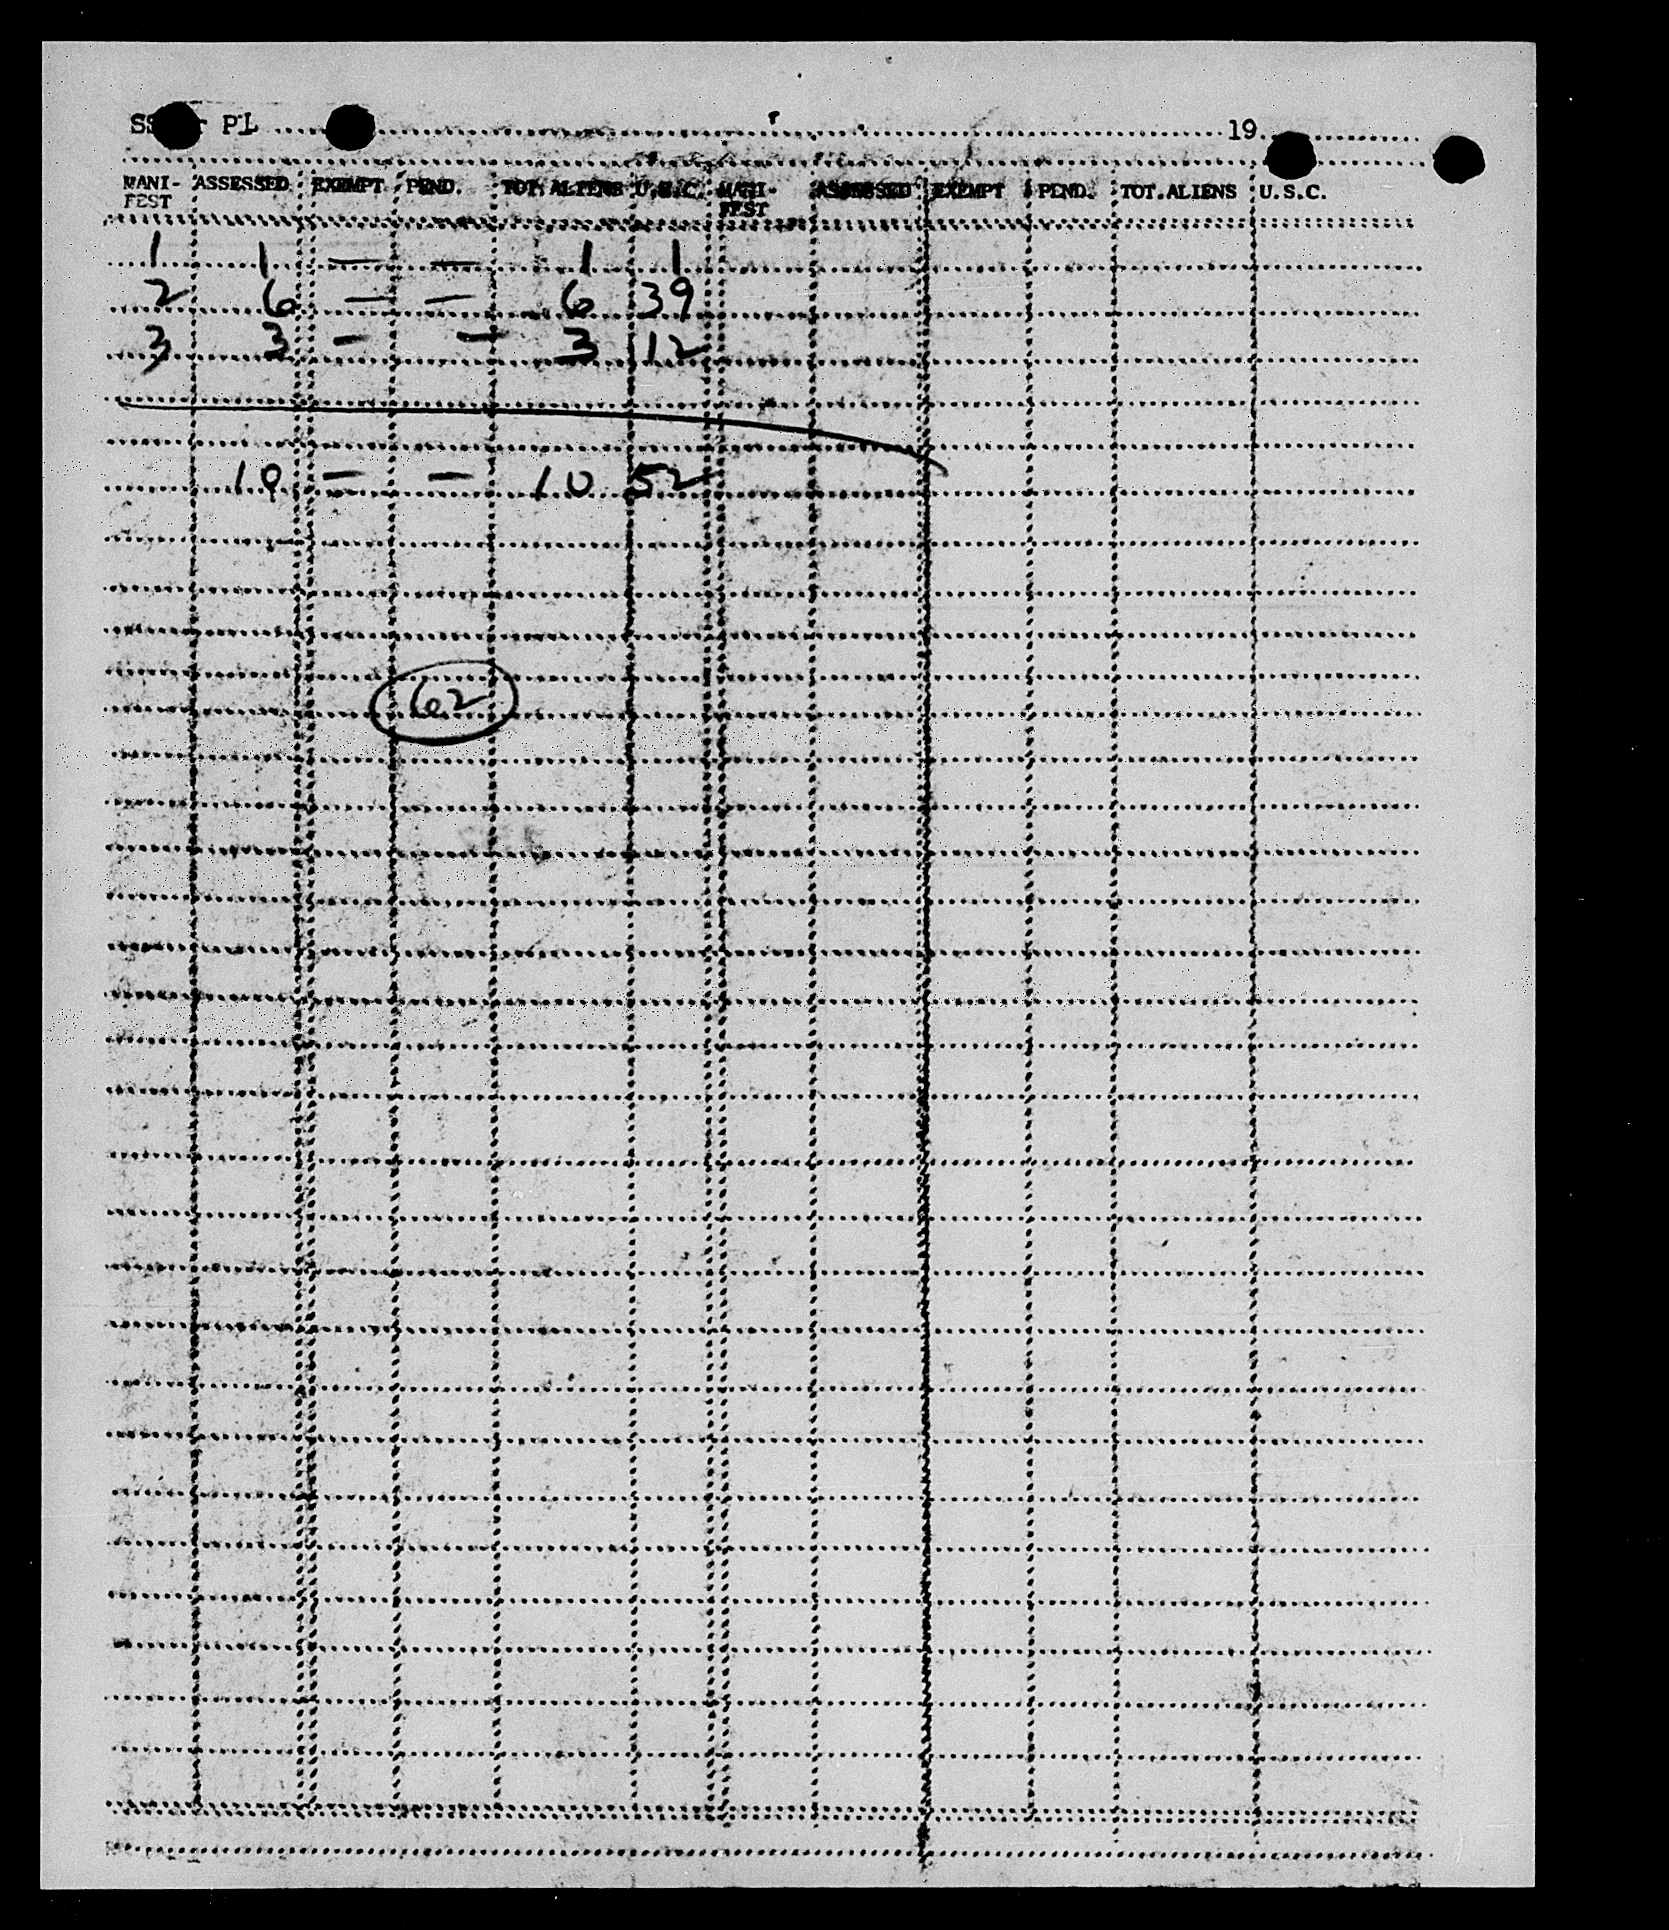 SS or PL 19
MANI- ASSESSED EXEMPT PEND. TOT. ALIENS U.S.C. MANI- ASSESSED EXEMPT PEND. TOT.ALIENS U.S.C.
FEST FEST
1 1 — — 1 1
2 6 — — 6 39
3 3 - - 3 12
10 — — 10 52
62